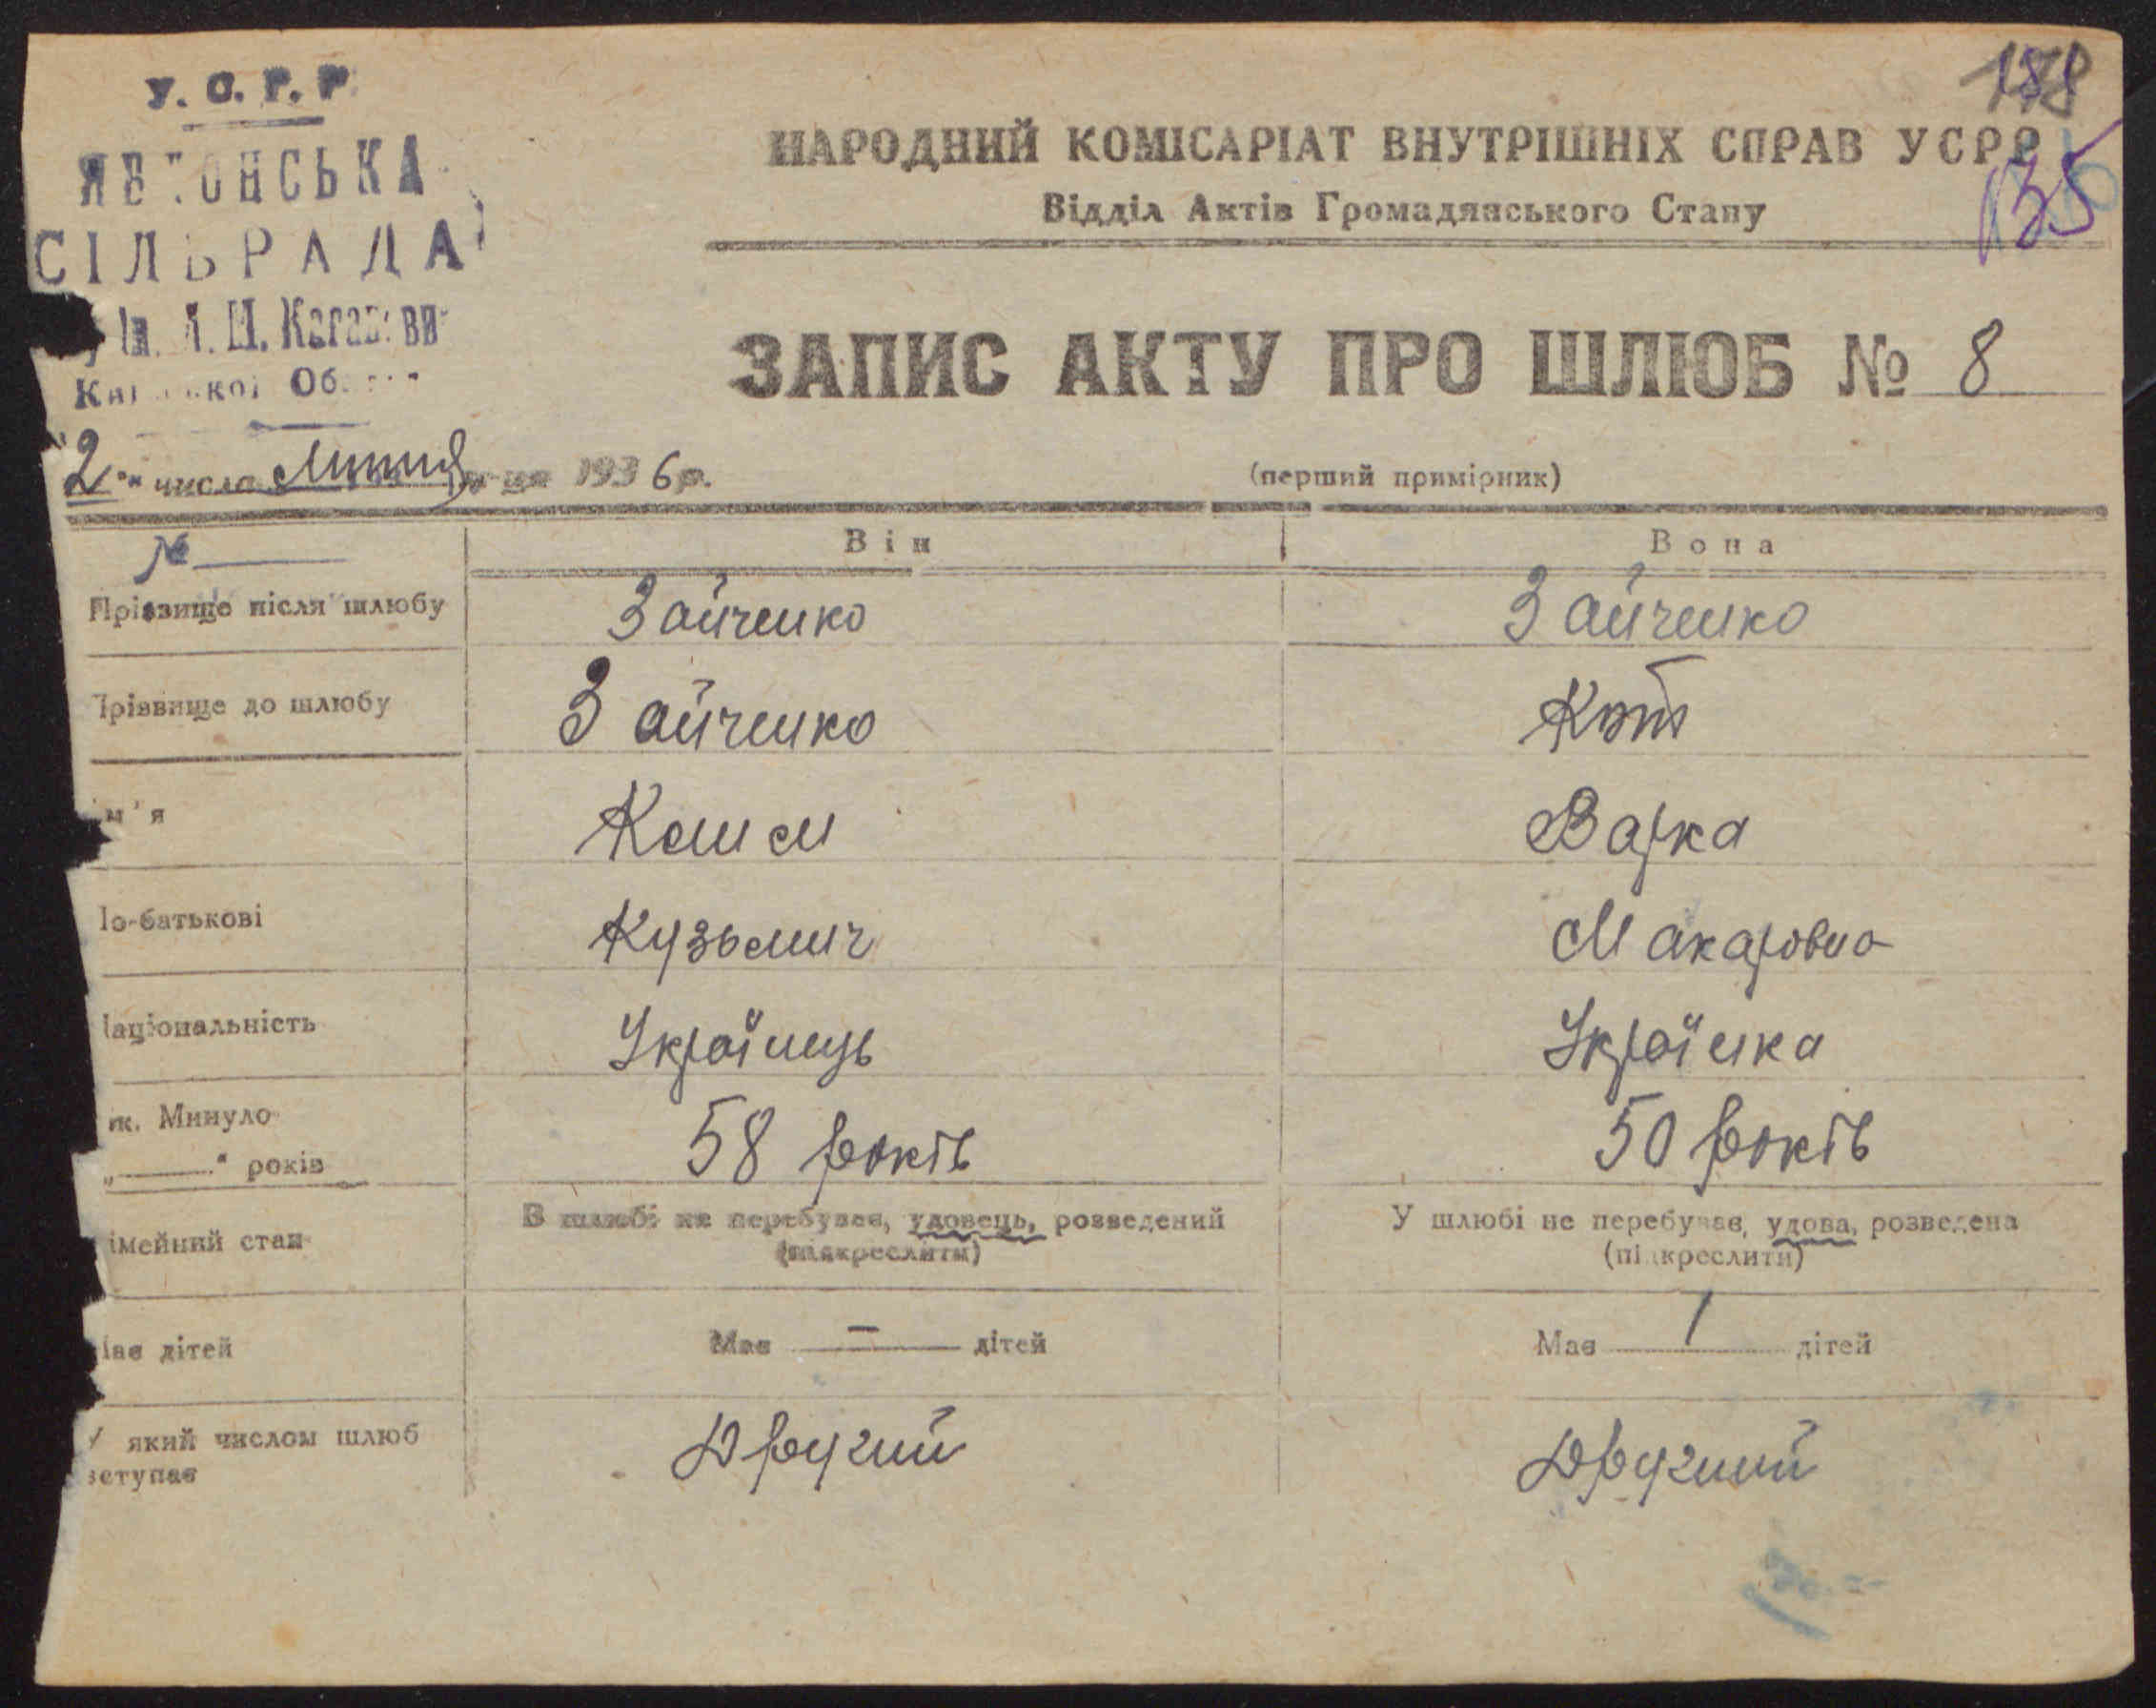 У. С. Р. Р.
СІЛЬРАДА
ім.
НАРОДНИЙ КОМІСАРІАТ ВНУТРІШНІХ СПРАВ УСРР
135
Відділ Актів Громадянського Стану
ЗАПИС АКТУ ПРО ШЛЮБ № 8
2 числа Липня 1936 р.
(перший примірник)
№
Він
Вона
Прізвище після шлюбу Зайченко Зайченко
Прізвище до шлюбу Зайченко Кот
м'я Клим Варка
о-батькові Кузьмич Макаровна
аціональність Українець Українка
ік. Минуло
„ “ років 58 років 50 років
імейний стан В шлюбі не перебував, удовець, розведений У шлюбі не перебуває, удова, розведена
(підкреслити) (підкреслити)
Має дітей Має — дітей Має 1 дітей
У який числом шлюб Другий Другий
вступає